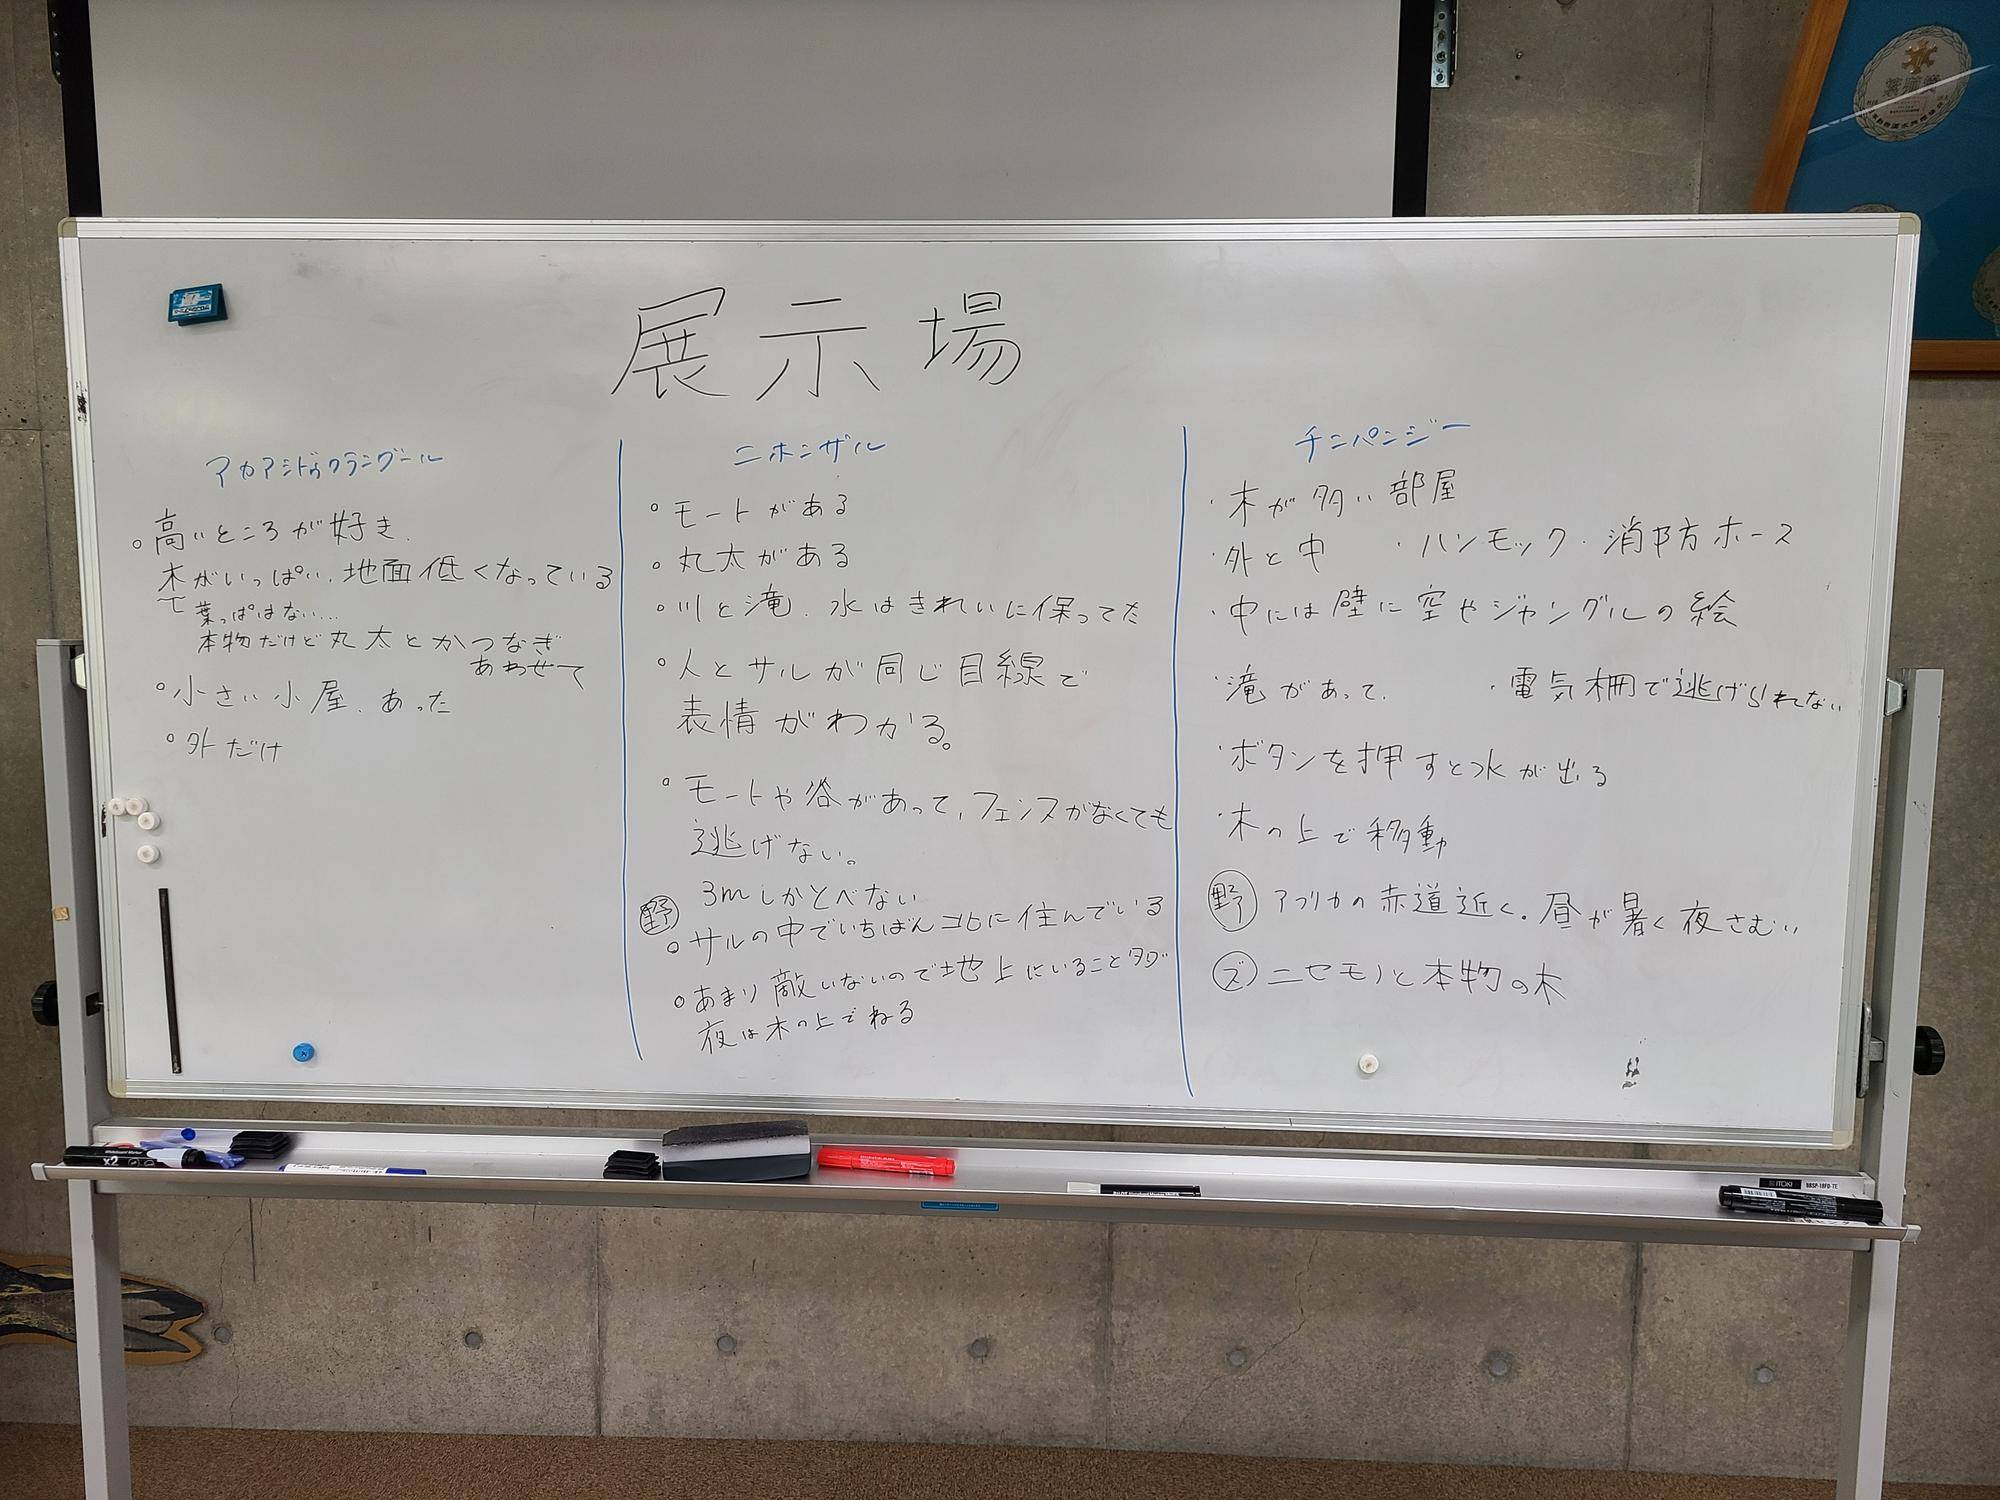 展示場
アカアシドゥクラングール
○高いところが好き.
木がいっぱい、地面低くなっている
て葉っぱはない…
本物だけど丸太とかつなぎ
あわせて
○小さい小屋、あった
○外だけ
ニホンザル
○モートがある
○丸太がある
○川と滝、水はきれいに保ってた
○人とサルが同じ目線で
表情がわかる。
○モートや谷があって、フェンスがなくても
逃げない。
3mしかとべない
野
○サルの中でいちばん北に住んでいる
○あまり敵いないので地上にいること多い
夜は木の上でねる
チンパンジー
・木が多い部屋
・外と中 ・ハンモック・消防ホース
・中には壁に空やジャングルの絵
・滝があって、 ・電気柵で逃げられない
・ボタンを押すと水が出る
・木の上で移動
野 アフリカの赤道近く。昼が暑く夜さむい
ズ ニセモノと本物の木
ITOKI